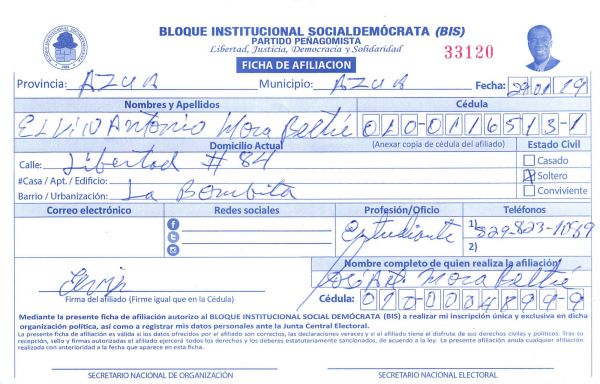 BLOQUE INSTITUCIONAL SOCIALDEMÓCRATA (BIS)
PARTIDO PEÑAGOMISTA
Libertad, Justicia, Democracia y Solidaridad
33120
FICHA DE AFILIACION
Provincia: AZUA Municipio: AZUA Fecha: 28/01/19
Nombres y Apellidos Cédula
ELVIN Antonio Mora Beltré 010-0116513-1
Domicilio Actual (Anexar copia de cédula del afiliado) Estado Civil
Calle: Libertad # 84 Casado
#Casa / Apt. / Edificio: Soltero
Barrio / Urbanización: La Bombita Conviviente
Correo electrónico Redes sociales Profesión/Oficio Teléfonos
Estudiante 1) 829-823-
2)
Nombre completo de quien realiza la afiliación
Elvin José Ant. Mora Beltré
Firma del afiliado (Firme igual que en la Cédula) Cédula: 010-0004899-9
Mediante la presente ficha de afiliación autorizo al BLOQUE INSTITUCIONAL SOCIAL DEMÓCRATA (BIS) a realizar mi inscripción única y exclusiva en dicha
organización política, así como a registrar mis datos personales ante la Junta Central Electoral.
La presente ficha de afiliación es válida si los datos ofrecidos por el afiliado son correctos, las declaraciones veraces y si el afiliado tiene el disfrute de sus derechos civiles y políticos. Tras su
recepción, sello y firmas autorizadas el afiliado ejercerá todos los derechos y los deberes estatutariamente sancionados, de acuerdo a la ley. La presente afiliación anula cualquier afiliación
realizada con anterioridad a la fecha que aparece en esta ficha.
SECRETARIO NACIONAL DE ORGANIZACIÓN SECRETARIO NACIONAL ELECTORAL